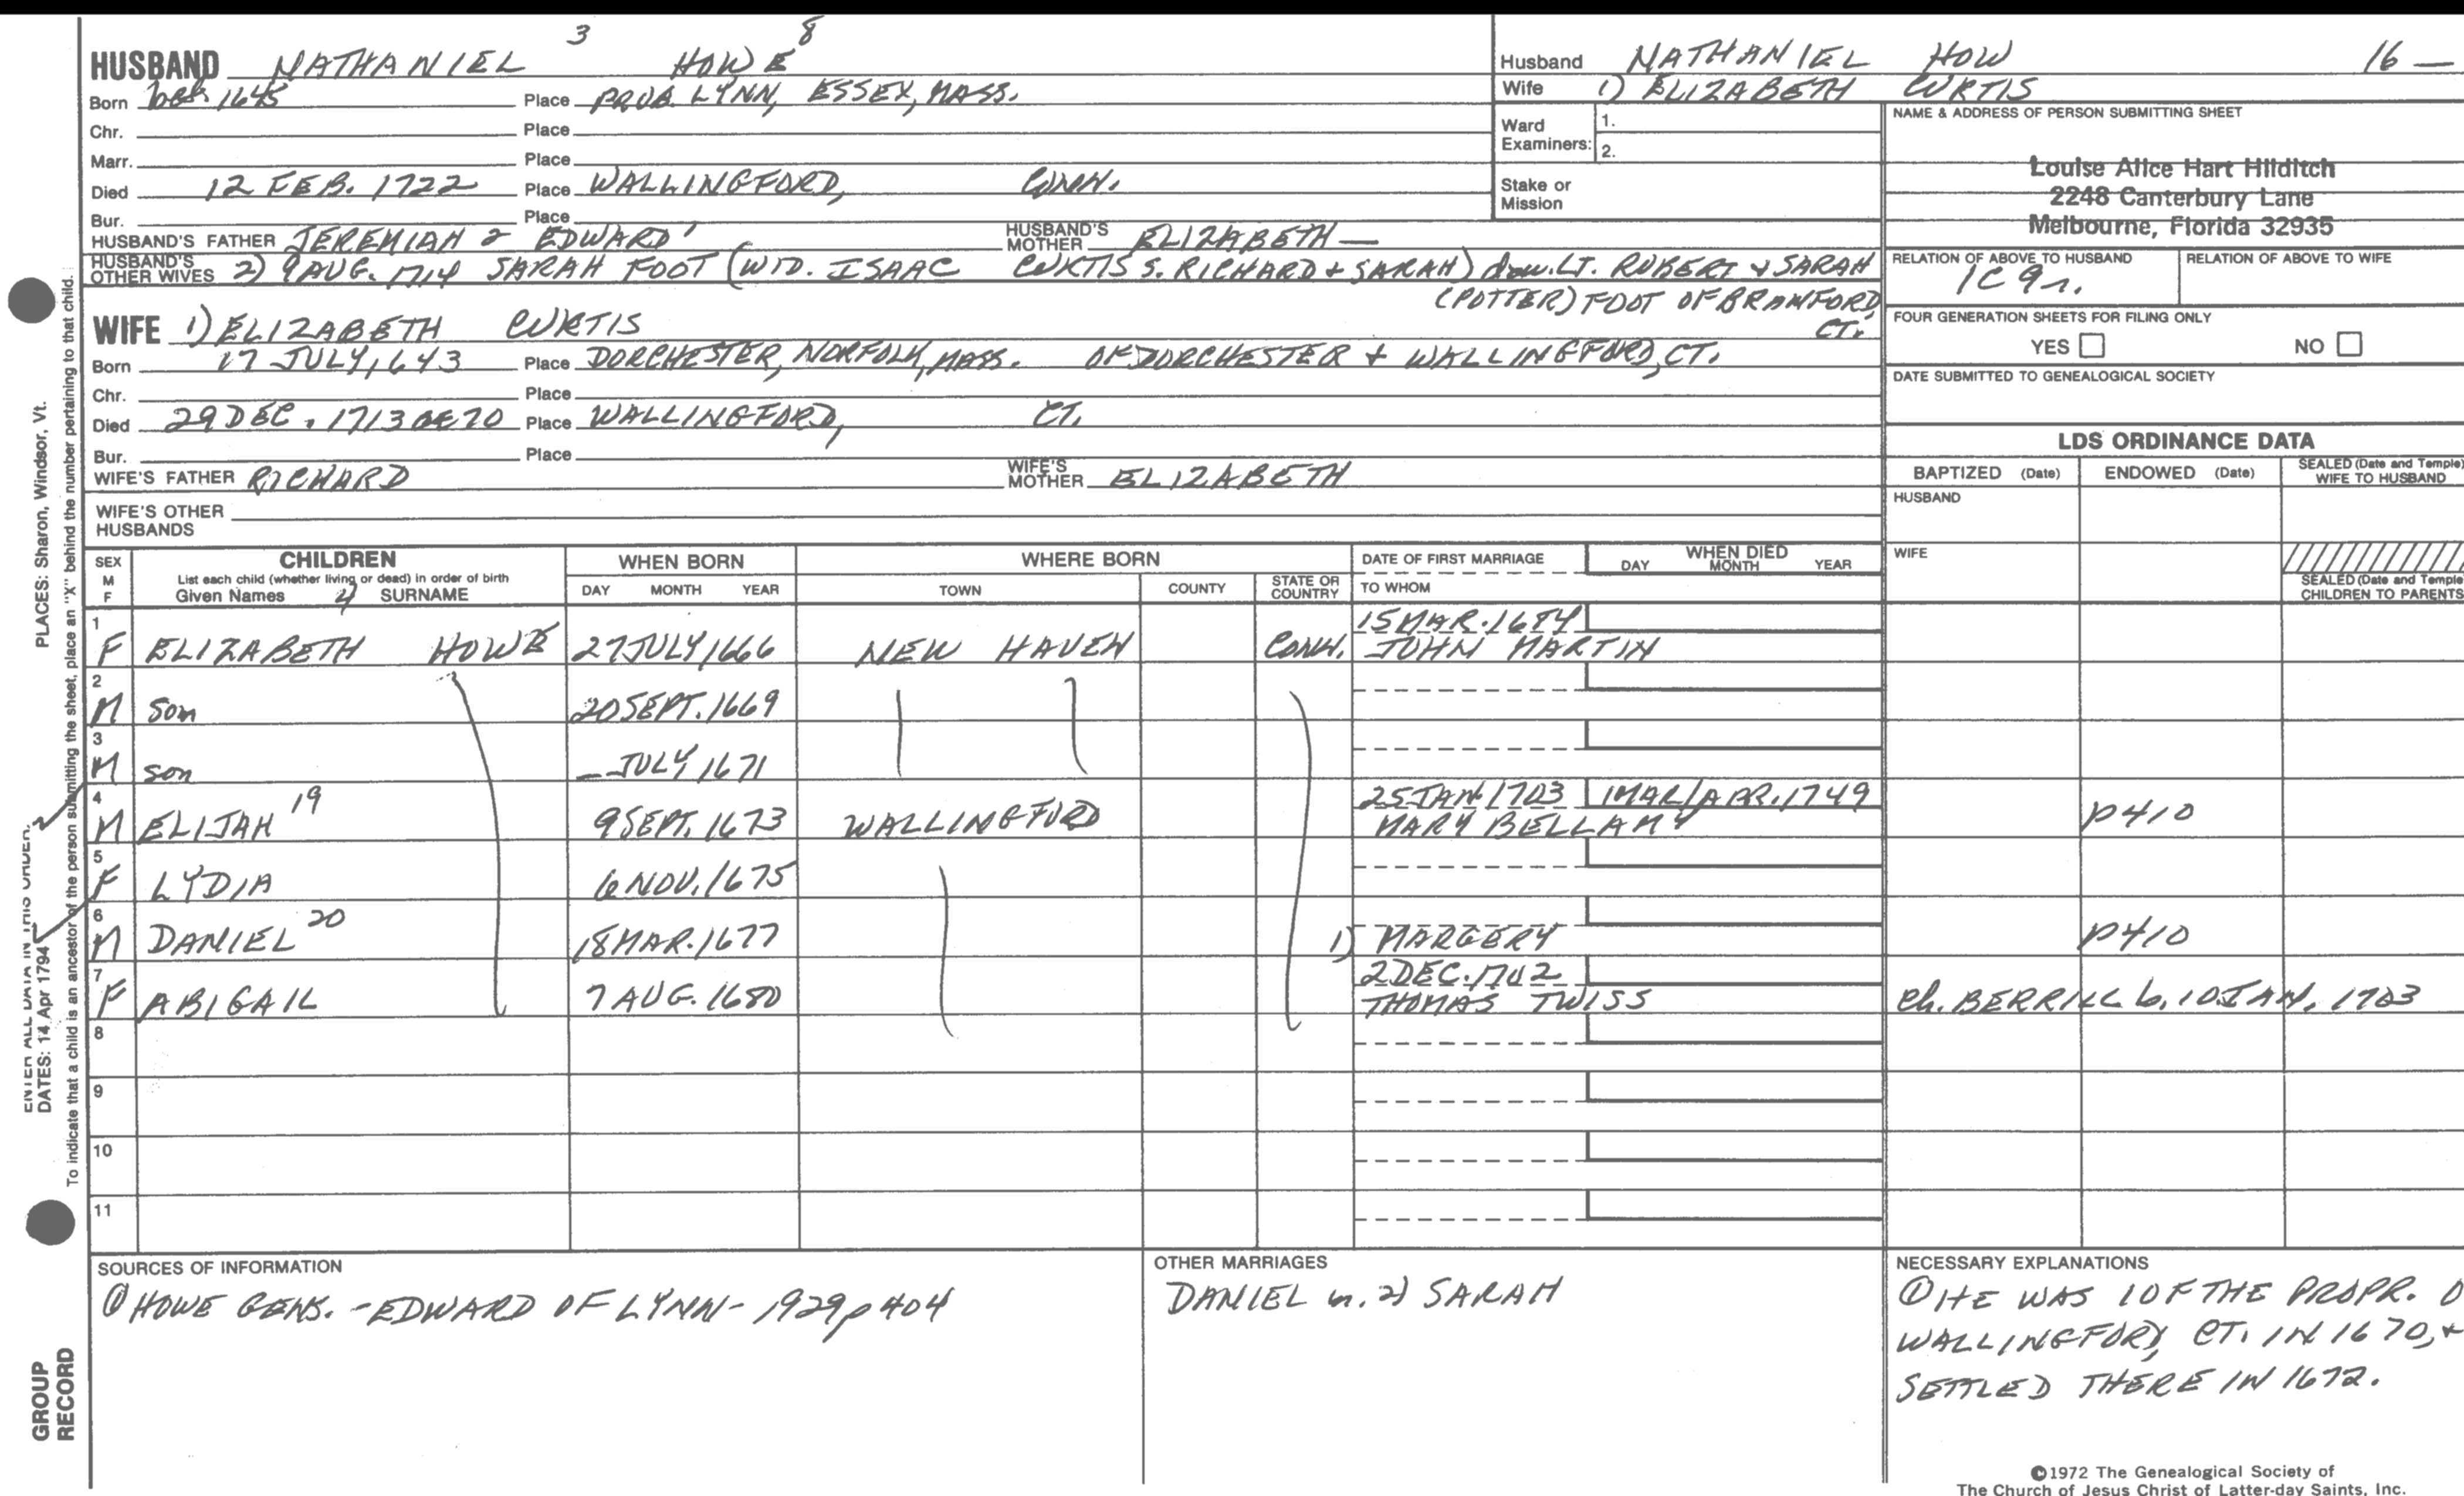 HUSBAND NATHANIEL 3 HOWE 8
Born bef. 1645 Place PROB. LYNN, ESSEX, MASS.
Chr. Place
Marr. Place
Died 12 FEB. 1722 Place WALLINGFORD, CONN.
Bur. Place
HUSBAND'S FATHER JEREMIAH 2 EDWARD 1 HUSBAND'S MOTHER ELIZABETH —
HUSBAND'S OTHER WIVES 2) 9 AUG. 1714 SARAH FOOT (WID. ISAAC CURTIS S. RICHARD + SARAH) dau. LT. ROBERT + SARAH
(POTTER) FOOT OF BRANFORD
CT.
WIFE 1) ELIZABETH CURTIS
Born 17 JULY, 1643 Place DORCHESTER, NORFOLK, MASS. OF DORCHESTER + WALLINGFORD, CT.
Chr. Place
Died 29 DEC. 1713 ae 70 Place WALLINGFORD, CT.
Bur. Place
WIFE'S FATHER RICHARD WIFE'S MOTHER ELIZABETH
WIFE'S OTHER HUSBANDS
Husband NATHANIEL HOW 16 —
Wife 1) ELIZABETH CURTIS
Ward Examiners: 1.
2.
Stake or Mission
NAME & ADDRESS OF PERSON SUBMITTING SHEET
Louise Alice Hart Hilditch
2248 Canterbury Lane
Melbourne, Florida 32935
RELATION OF ABOVE TO HUSBAND RELATION OF ABOVE TO WIFE
1C 9r.
FOUR GENERATION SHEETS FOR FILING ONLY
YES NO
DATE SUBMITTED TO GENEALOGICAL SOCIETY
LDS ORDINANCE DATA
BAPTIZED (Date) ENDOWED (Date) SEALED (Date and Temple) WIFE TO HUSBAND
HUSBAND
WIFE
SEALED (Date and Temple) CHILDREN TO PARENTS
SEX M F CHILDREN WHEN BORN WHERE BORN DATE OF FIRST MARRIAGE WHEN DIED
List each child (whether living or dead) in order of birth
Given Names 4 SURNAME DAY MONTH YEAR TOWN COUNTY STATE OR COUNTRY TO WHOM DAY MONTH YEAR
1 F ELIZABETH HOWE 27 JULY, 1666 NEW HAVEN CONN. 15 MAR. 1684 JOHN MARTIN
2 M son 20 SEPT. 1669
3 M son — JULY, 1671
4 M ELIJAH 19 9 SEPT. 1673 WALLINGFORD 25 JAN. 1703 MARY BELLAMY 1 MAR/APR. 1749 P410
5 F LYDIA 6 NOV. 1675
6 M DANIEL 20 18 MAR. 1677 1) MARGERY P410
7 F ABIGAIL 7 AUG. 1680 2 DEC. 1702 THOMAS TWISS ch. BERRILL b. 10 JAN. 1703
8
9
10
11
SOURCES OF INFORMATION
① HOWE GENS. - EDWARD OF LYNN - 1929 p 404
OTHER MARRIAGES
DANIEL m. 2) SARAH
NECESSARY EXPLANATIONS
① HE WAS 1 OF THE PROPR. O
WALLINGFORD, CT. IN 1670, +
SETTLED THERE IN 1672.
©1972 The Genealogical Society of
The Church of Jesus Christ of Latter-day Saints, Inc.
PLACES: Sharon, Windsor, Vt.
ENTER ALL DATA IN THIS ORDER:
DATES: 14 Apr 1794
To indicate that a child is an ancestor of the person submitting the sheet, place an "X" behind the number pertaining to that child.
GROUP
RECORD